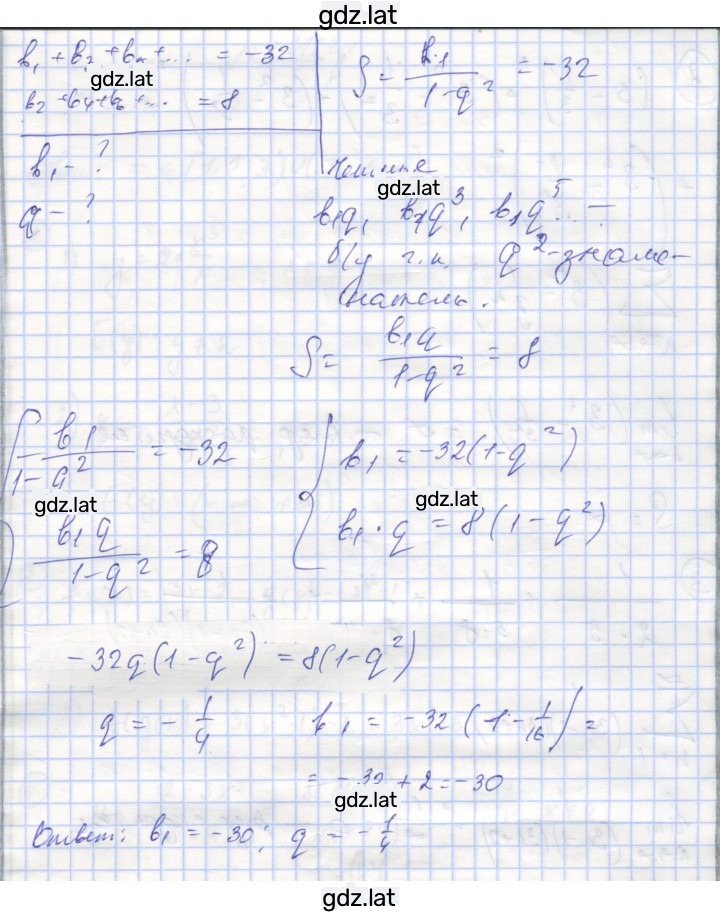 gdz.lat
b₁ + b₂ + b₄ + ... = -32
gdz.lat
b₂ + b₄ + b₆ + ... = 8
b₁ - ?
q - ?
S = b₁/(1-q²) = -32
gdz.lat
b₁q, b₁q³, b₁q⁵... -
б/у г.п. q²-знаме-
натель.
S = b₁q/(1-q²) = 8
b₁/(1-q²) = -32
gdz.lat
b₁q/(1-q²) = 8
b₁ = -32(1-q²)
gdz.lat
b₁·q = 8(1-q²)
-32q(1-q²) = 8(1-q²)
q = -1/4
b₁ = -32(1-1/16) =
= -32+2 = -30
gdz.lat
Ответ: b₁ = -30; q = -1/4
gdz.lat